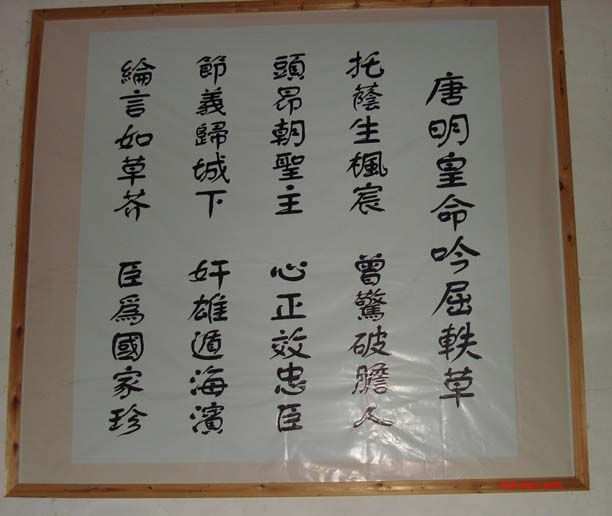 唐明皇命吟屈軼草
托蔭生楓宸 曾驚破膽人
頭昂朝聖主 心正效忠臣
節義歸城下 奸雄遁海濱
綸言如草芥 臣爲國家珍